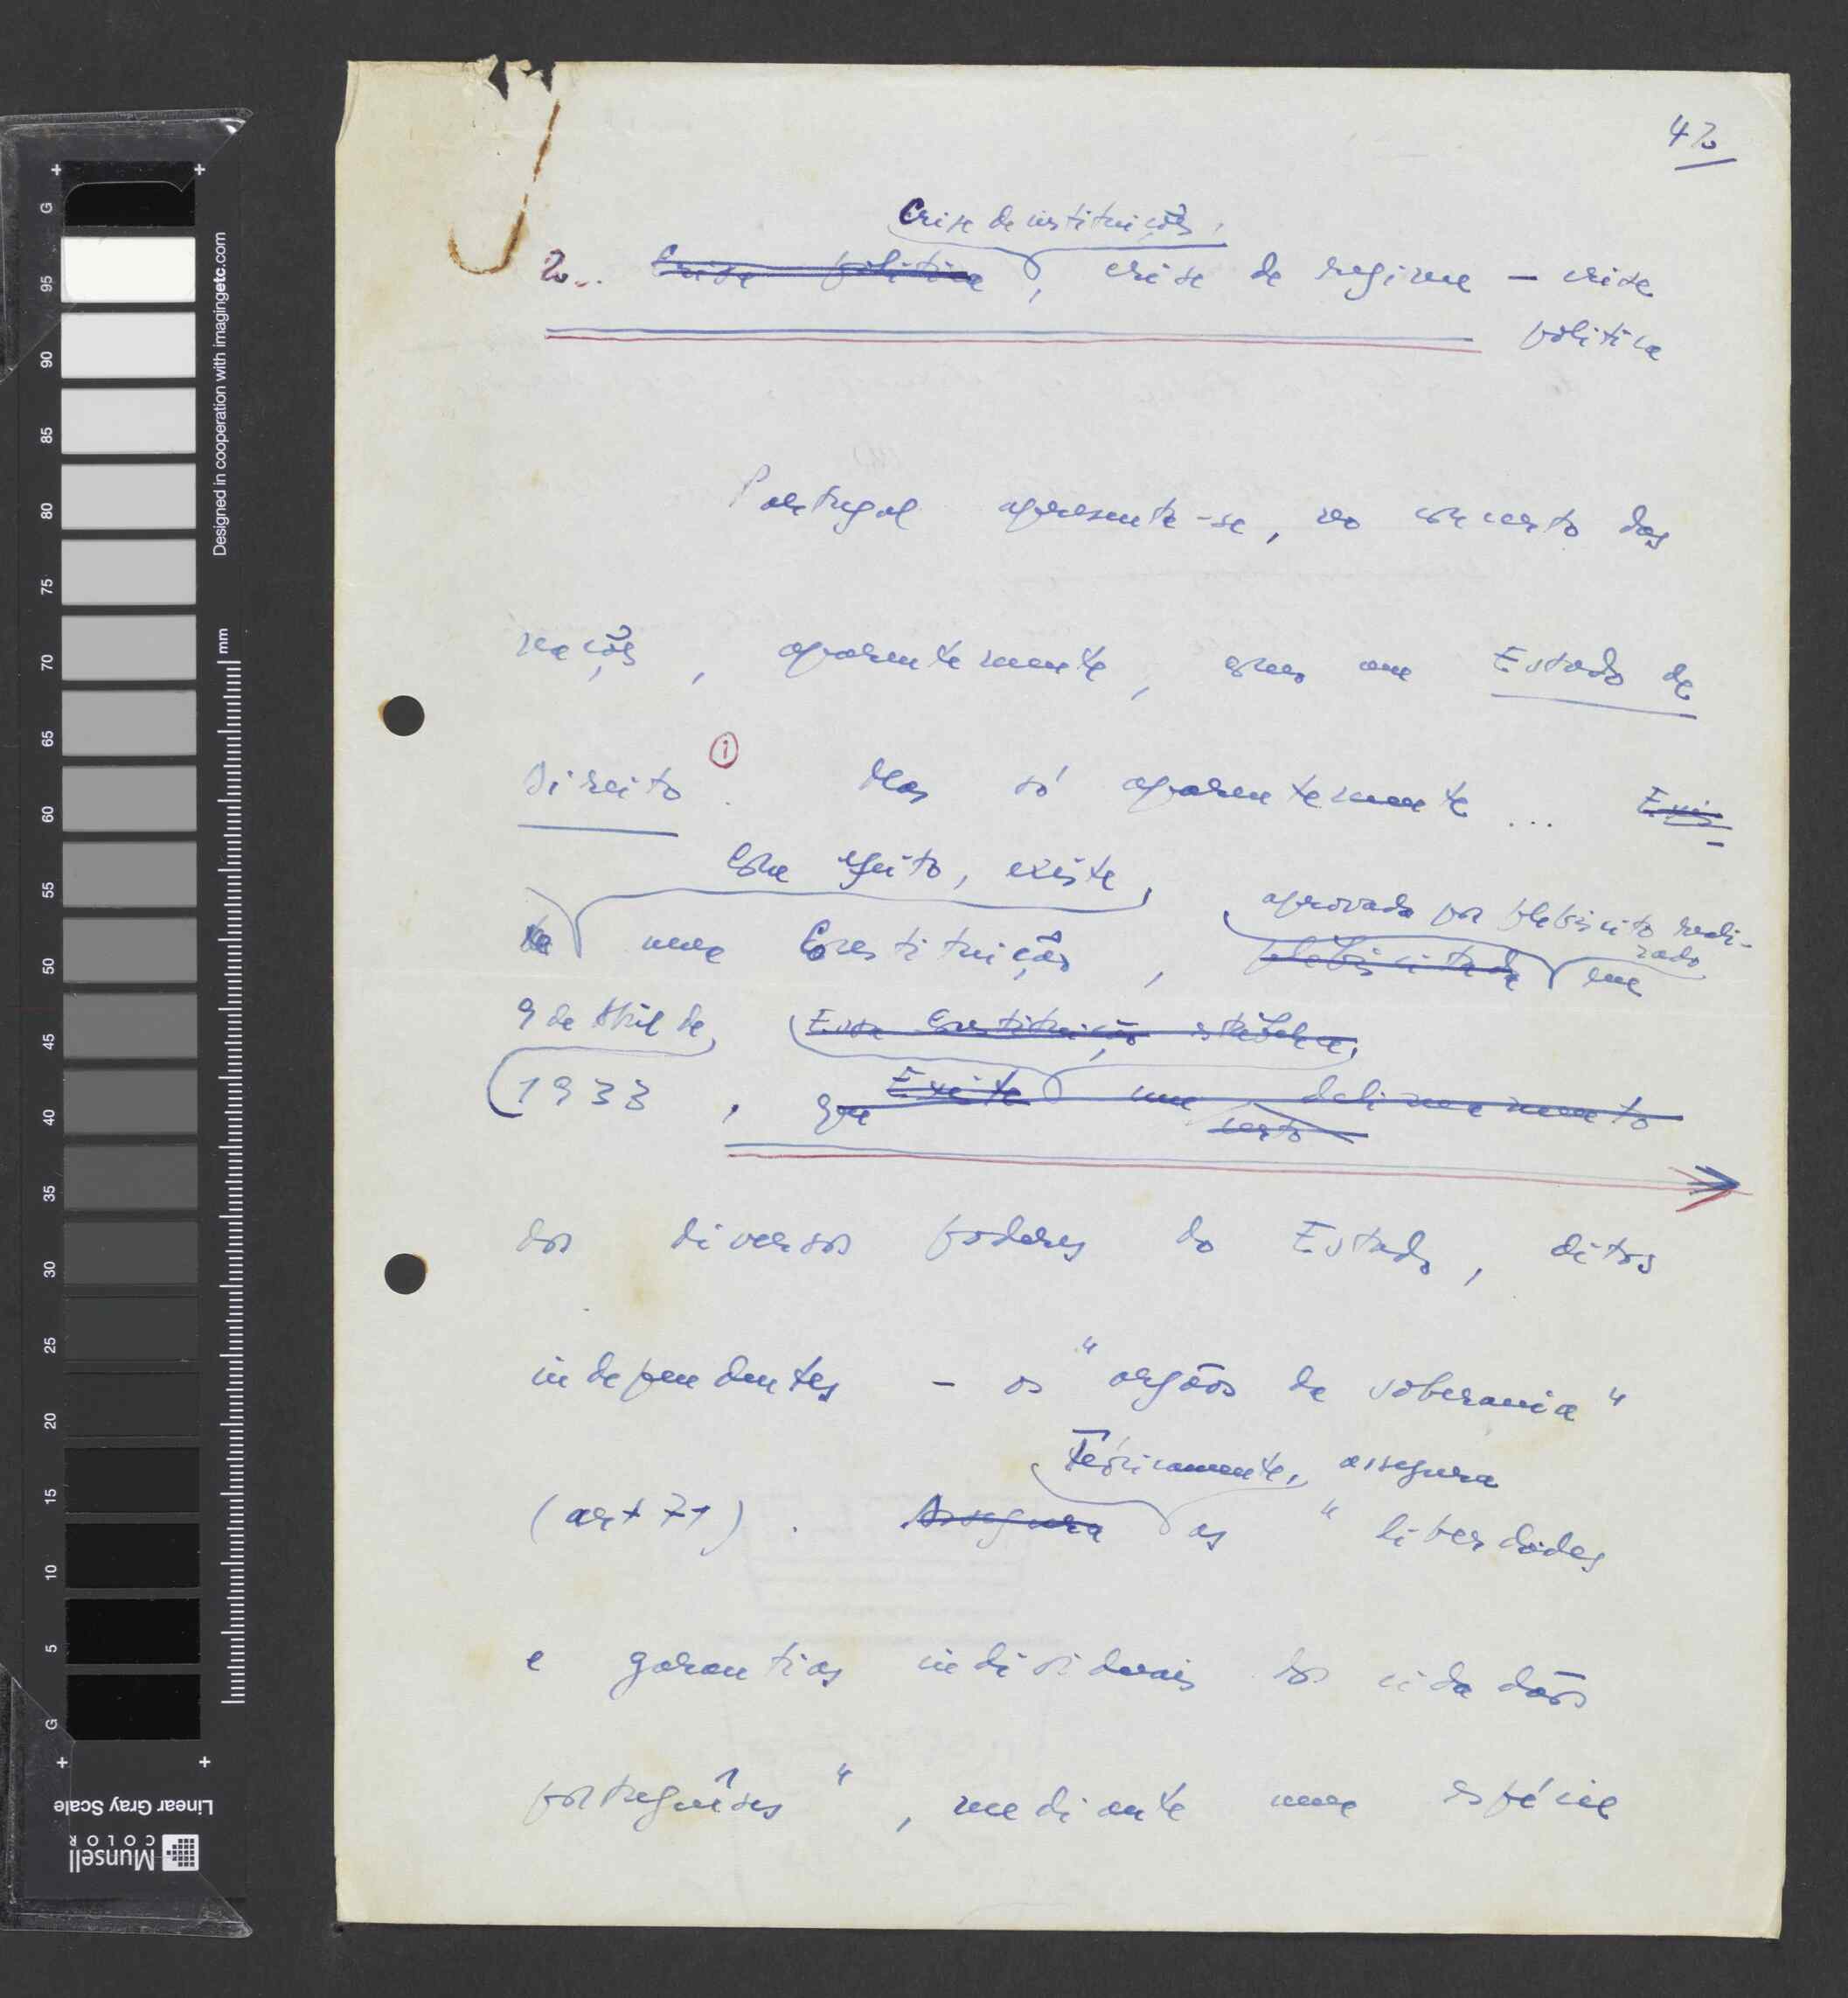 42
Crise de instituições,
2... Crise política, crise de regime — crise
política
Portugal apresenta-se, no concerto das
nações, aparentemente, como um Estado de
Direito ①. Mas só aparentemente... Exis-
Com efeito, existe,
aprovada por plebiscito reali-
zado
te uma Constituição, plebiscitada em
9 de Abril de
Essa Constituição estabelece,
1933, que Existe um delineamento
certo
dos diversos poderes do Estado, ditos
independentes — os "orgãos de soberania"
Teóricamente, assegura
(art 71). Assegura as "liberdades
e garantias individuais dos cidadãos
portuguêses", mediante uma espécie
Designed in cooperation with imagingetc.com
mm
G
95
90
85
80
75
70
65
60
55
50
45
40
35
30
25
20
15
10
5
G
Linear Gray Scale
Munsell
COLOR